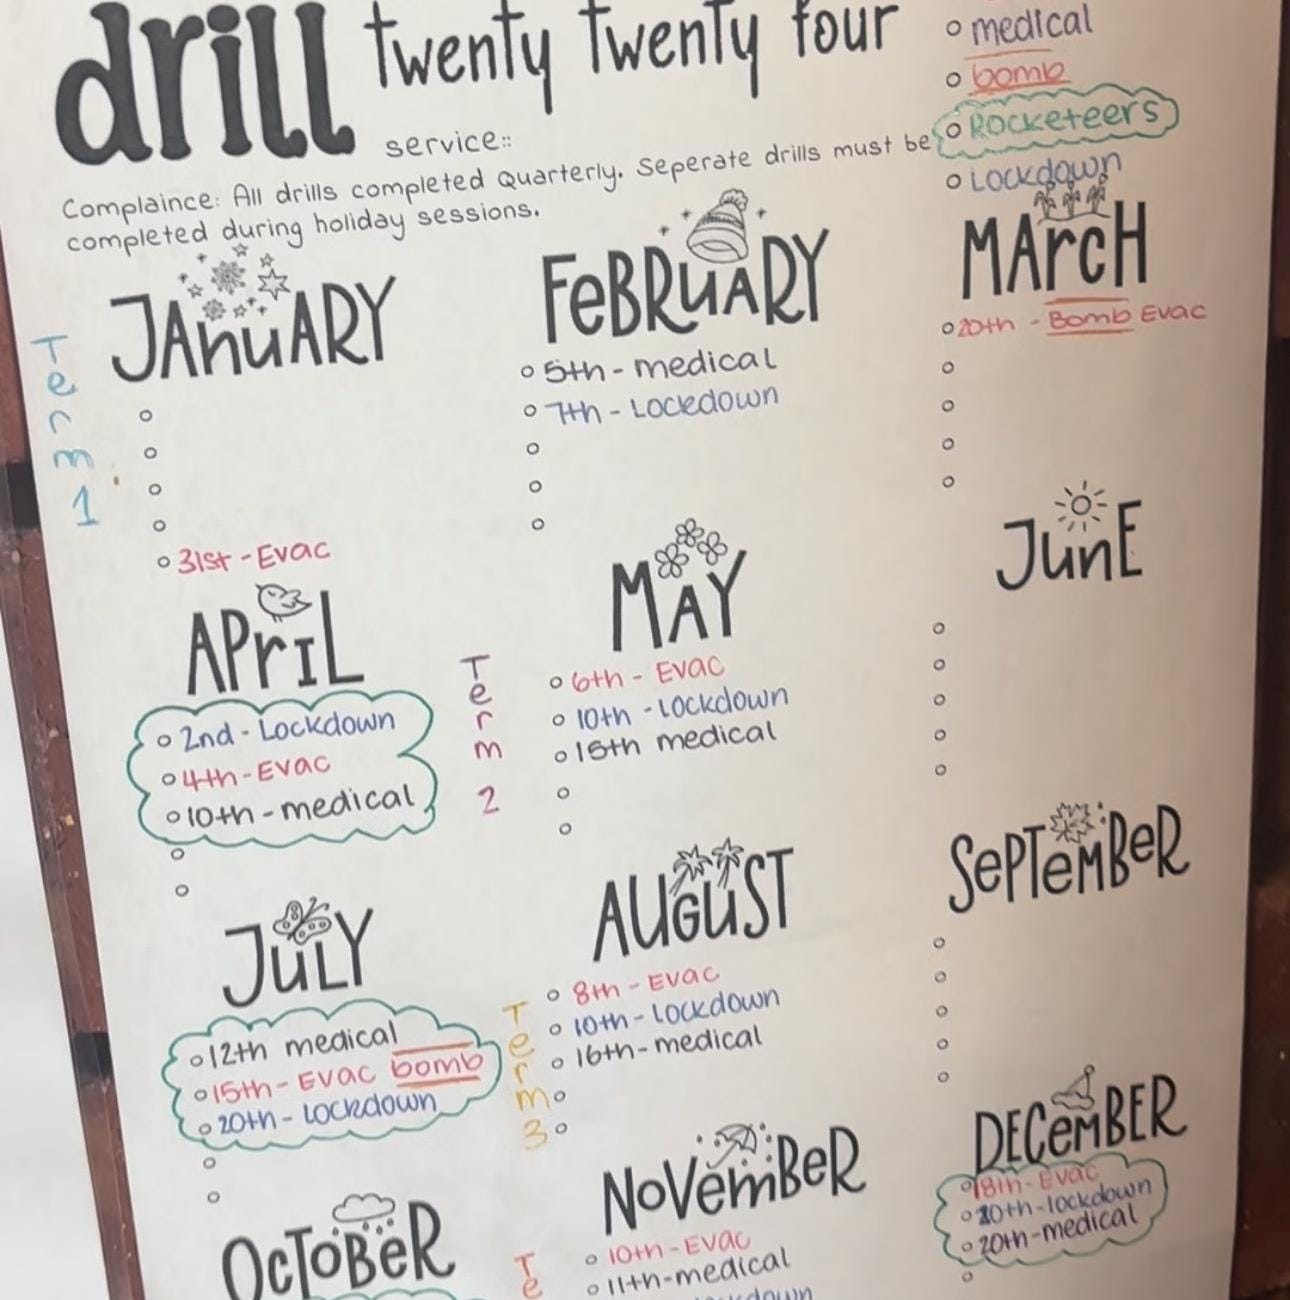 drill twenty twenty four
medical
bomb
Rocketeers
Lockdown
service::
Complaince: All drills completed Quarterly. Seperate drills must be
completed during holiday sessions.
JANuARY
FeBRuARY
MArcH
Term 1
31st - Evac
5th - medical
7th - Lockedown
20th - Bomb Evac
APriL
MAY
JunE
2nd - Lockdown
4th - Evac
10th - medical
Term 2
6th - Evac
10th - Lockdown
15th medical
JuLY
AUGuST
SePTeMBeR
12th medical
15th - Evac bomb
20th - Lockdown
Term 3
8th - Evac
10th - Lockdown
16th - medical
OcToBeR
NoVemBeR
DECeMBER
Te
10th - Evac
11th - medical
18th - Evac
20th - lockdown
20th - medical